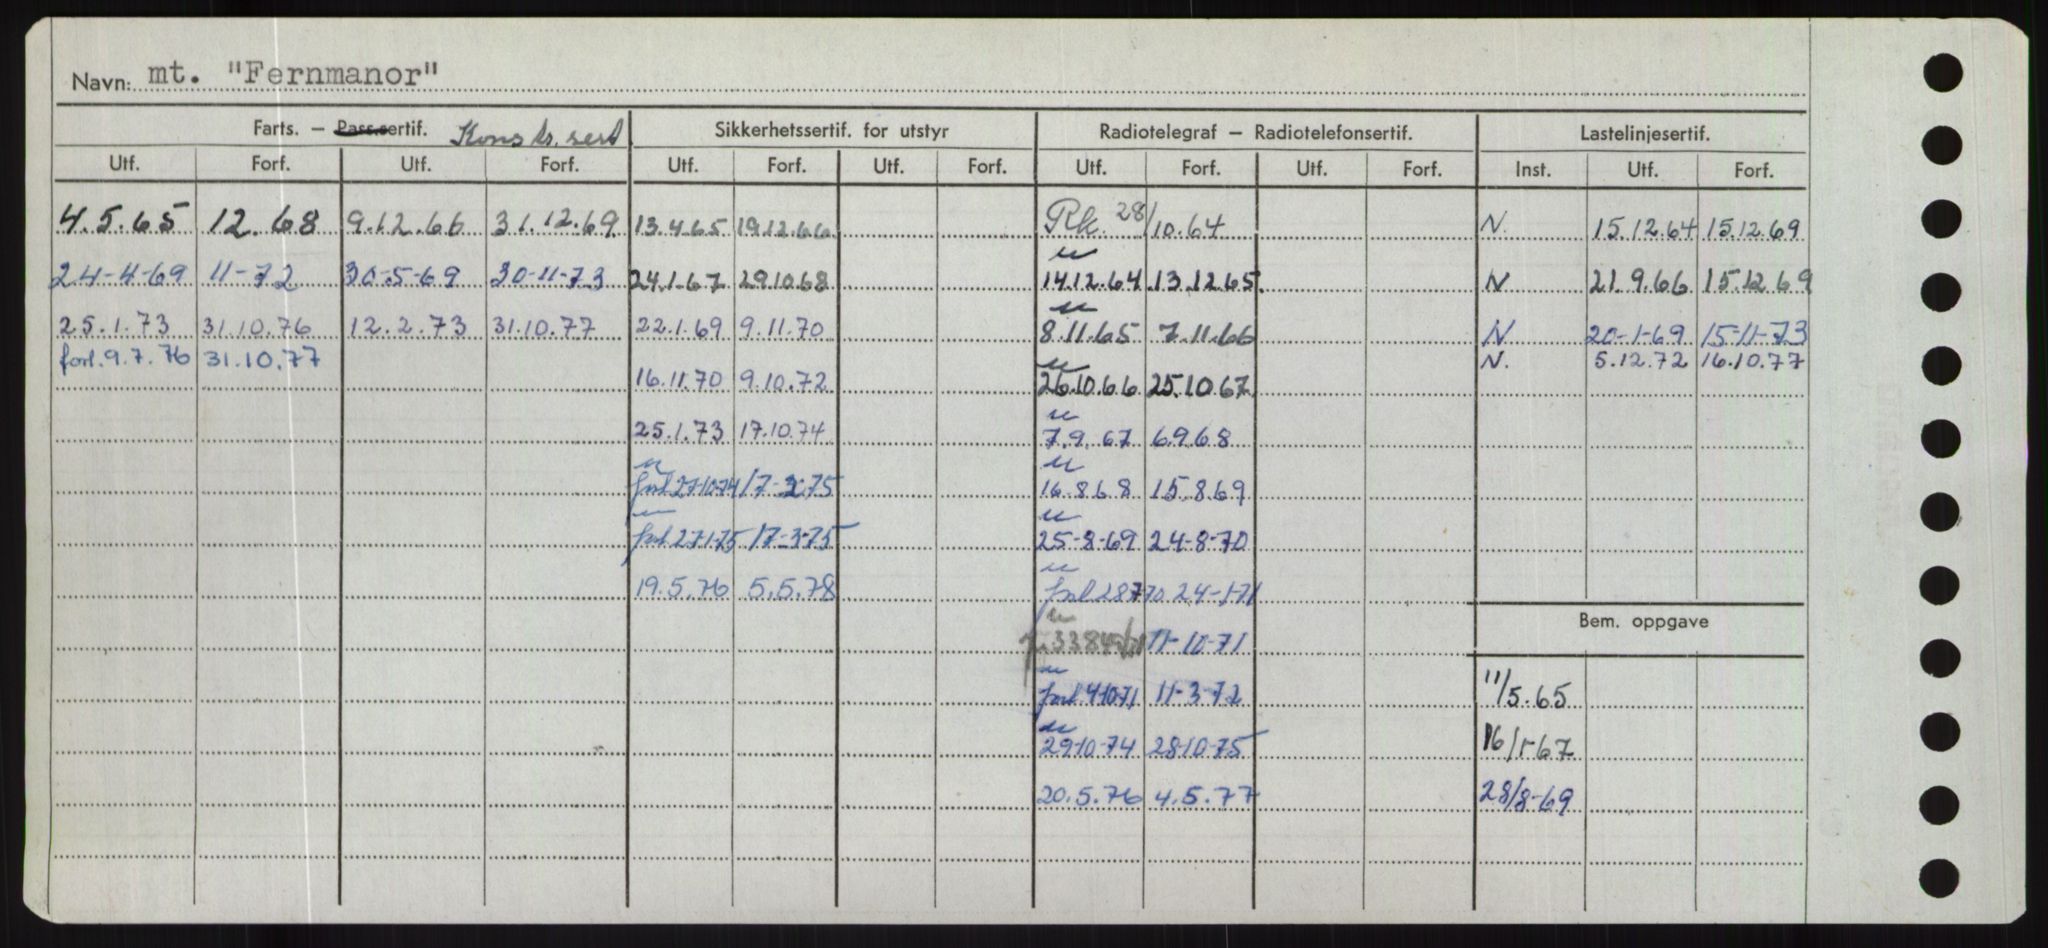 Navn: mt. "Fernmanor"
Farts. – Pass.sertif. Konstr. sert Sikkerhetssertif. for utstyr Radiotelegraf – Radiotelefonsertif. Lastelinjesertif.
Utf. Forf. Utf. Forf. Utf. Forf. Utf. Forf. Utf. Forf. Utf. Forf. Inst. Utf. Forf.
4.5.65 12.68 9.12.66 31.12.69 13.4.65 19.12.66 Rk. 28/10.64 N. 15.12.64 15.12.69
24-4-69 11-72 30-5-69 30-11-73 24.1.67 29.10.68 14.12.64 13.12.65 N 21.9.66 15.12.69
25.1.73 31.10.76 12.2.73 31.10.77 22.1.69 9.11.70 8.11.65 7.11.66 N 20-1-69 15-11-73
forl. 9.7.76 31.10.77 N. 5.12.72 16.10.77
16.11.70 9.10.72 26.10.66 25.10.67
25.1.73 17.10.74 7.9.67 6.9.68
forl 27-10-74 17- -75 16.8.68 15.8.69
forl 27-1-75 17-3-75 25-8-69 24-8-70
19.5.76 5.5.78 forl 28770 24-1-71
Bem. oppgave
11-10-71
11/5.65
forl 4-10-71 11-3-72
29-10-74 28-10-75 16/1-67
20.5.76 4.5.77 28/8-69